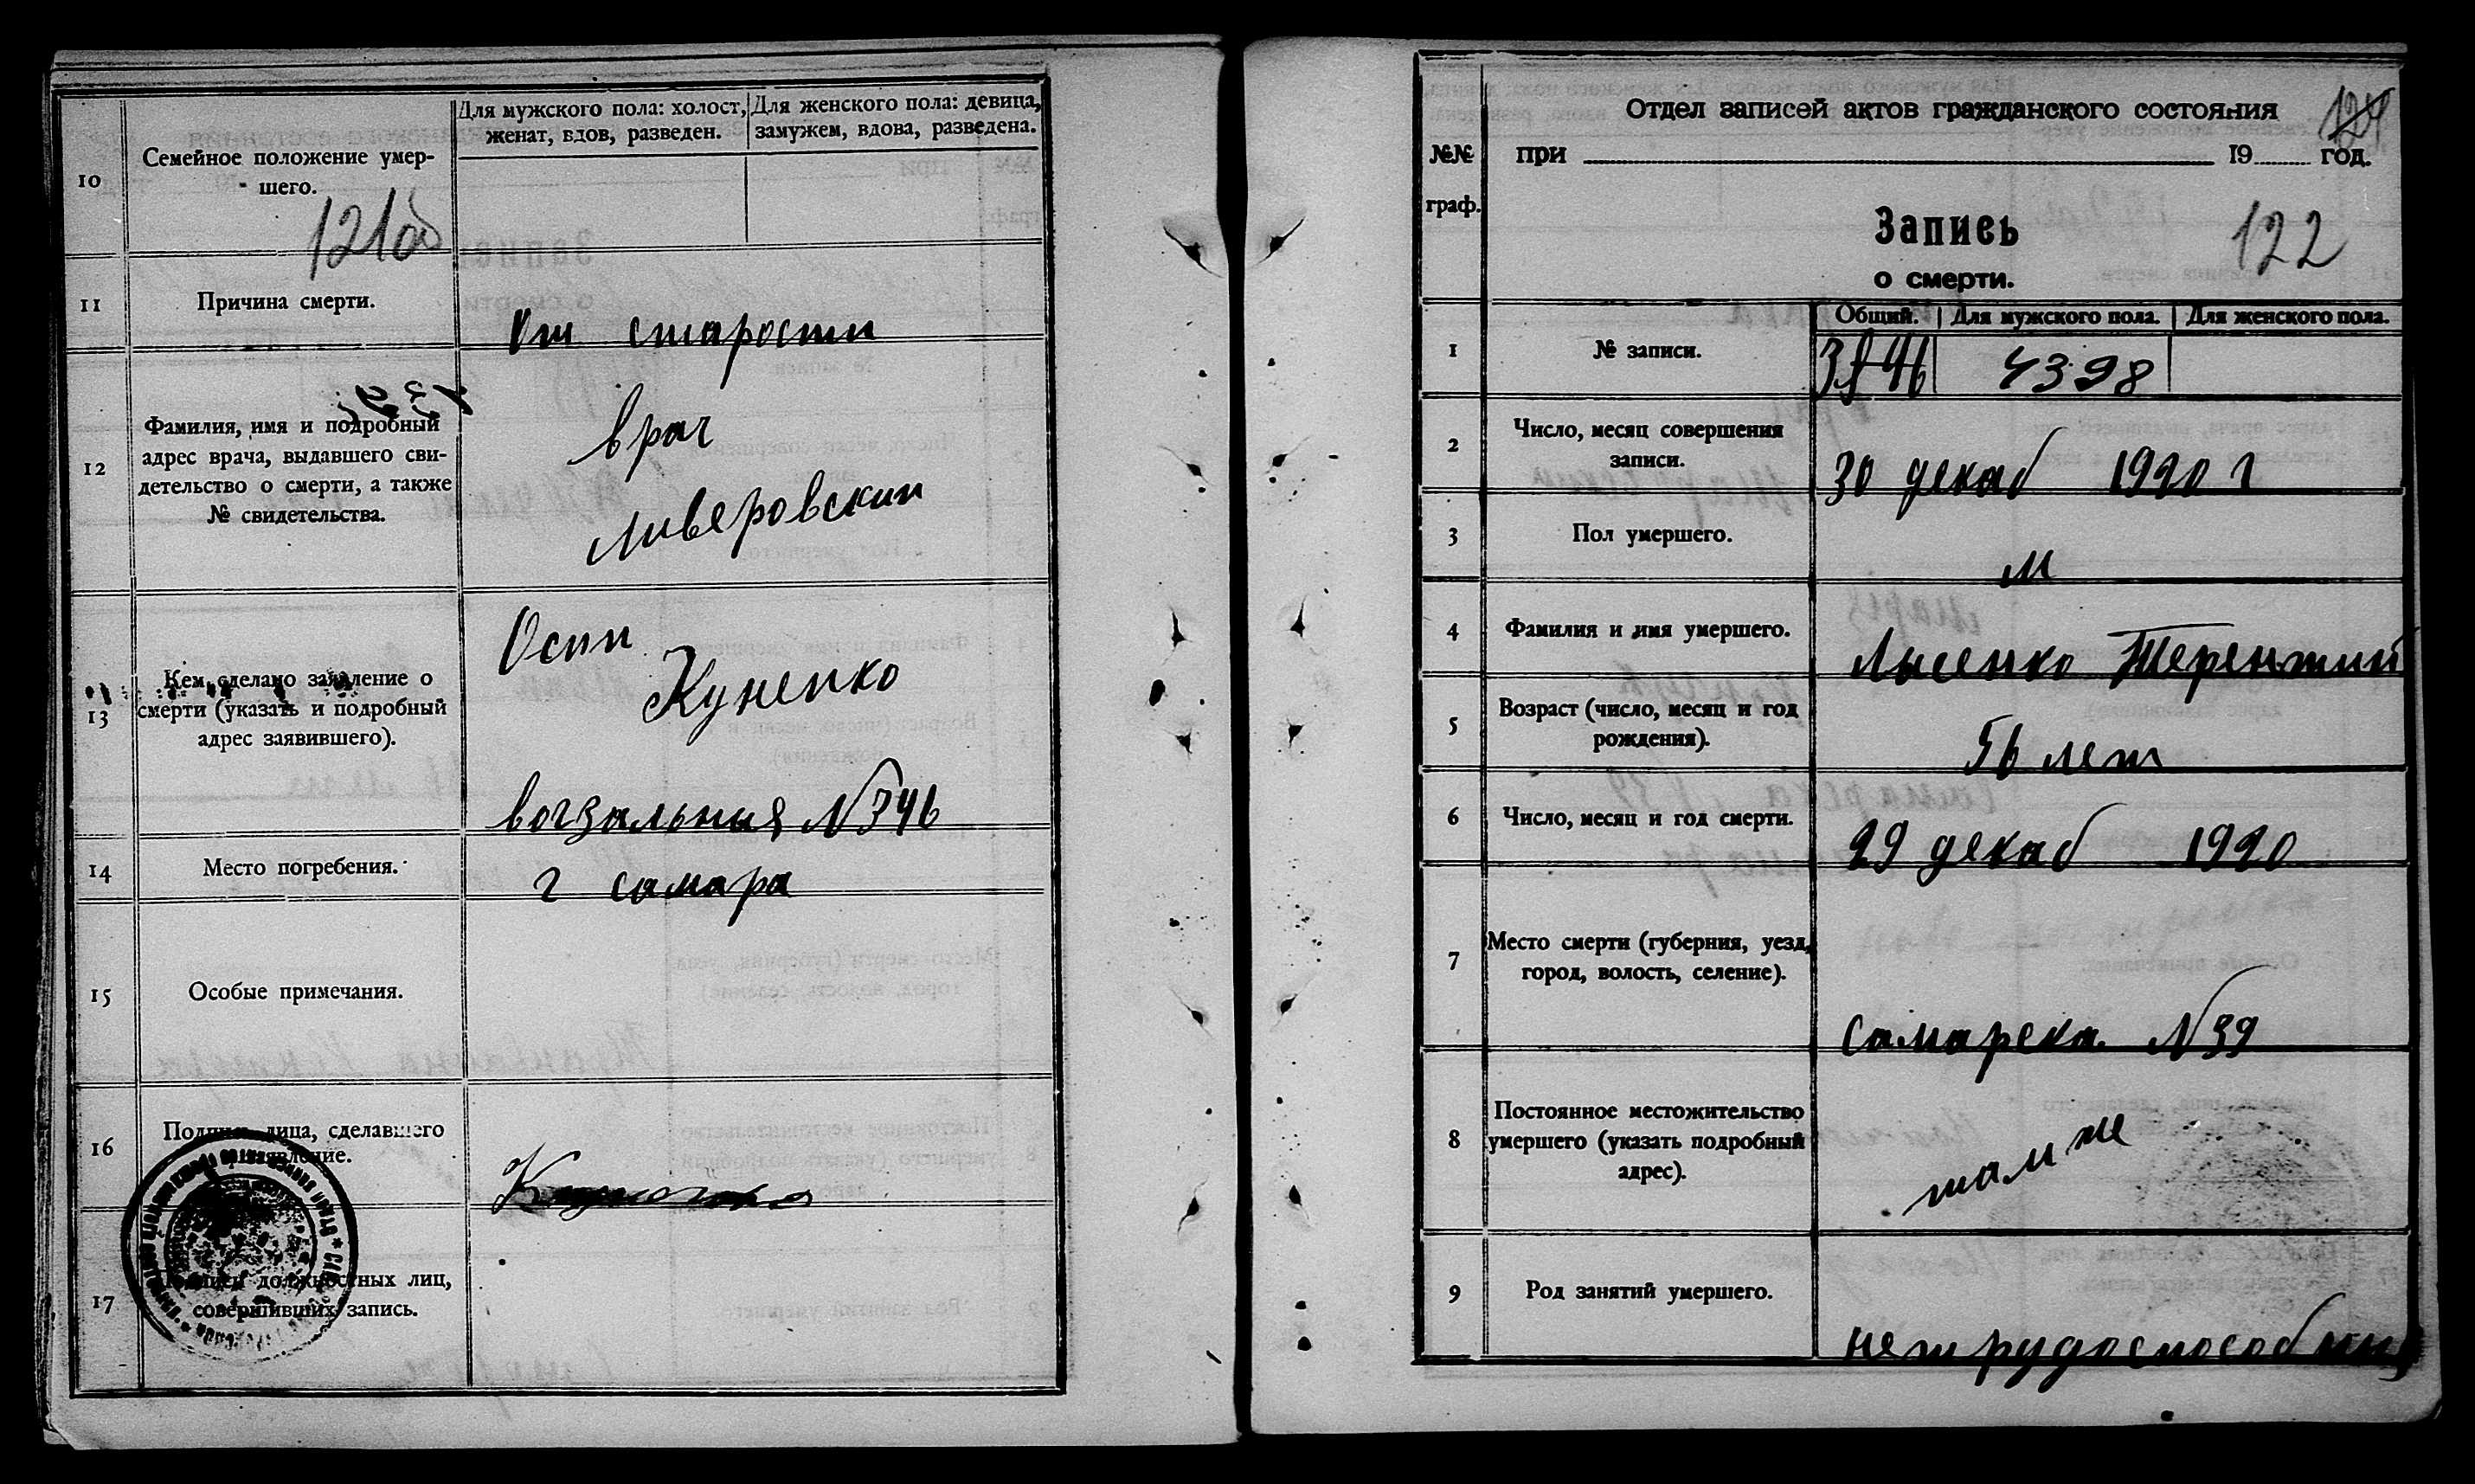 10
Семейное положение умер-
шего.
Для мужского пола: холост,
женат, вдов, разведен.
Для женского пола: девица,
замужем, вдова, разведена.
121об
11
Причина смерти.
От старости
12
Фамилия, имя и подробный
адрес врача, выдавшего сви-
детельство о смерти, а также
№ свидетельства.
врач
Ливеровскии
13
Кем сделано заявление о
смерти (указать и подробный
адрес заявившего).
Осип
Куненко
вогзальная №
14
Место погребения.
г самара
15
Особые примечания.
16
Подпись лица, сделавшего
заявление.
17
Подписи должностных лиц,
совершивших запись.
Отдел записей актов гражданского состояния
№№
граф.
при 19 год.
Запись
о смерти.
122
Общий. Для мужского пола. Для женского пола.
1
№ записи.
4398
2
Число, месяц совершения
записи.
30 декаб 1920 г
3
Пол умершего.
м
4
Фамилия и имя умершего.
Лысенко Терентий
5
Возраст (число, месяц и год
рождения).
56 лет
6
Число, месяц и год смерти.
29 декаб 1920
7
Место смерти (губерния, уезд,
город, волость, селение).
самарска №39
8
Постоянное местожительство
умершего (указать подробный
адрес).
там же
9
Род занятий умершего.
нетрудоспособный